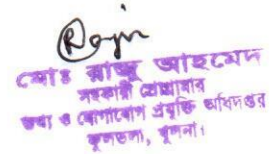 মোঃ রাজু আহমেদ
সহকারী প্রোগ্রামার
তথ্য ও যোগাযোগ প্রযুক্তি অধিদপ্তর
ফুলতলা, খুলনা।